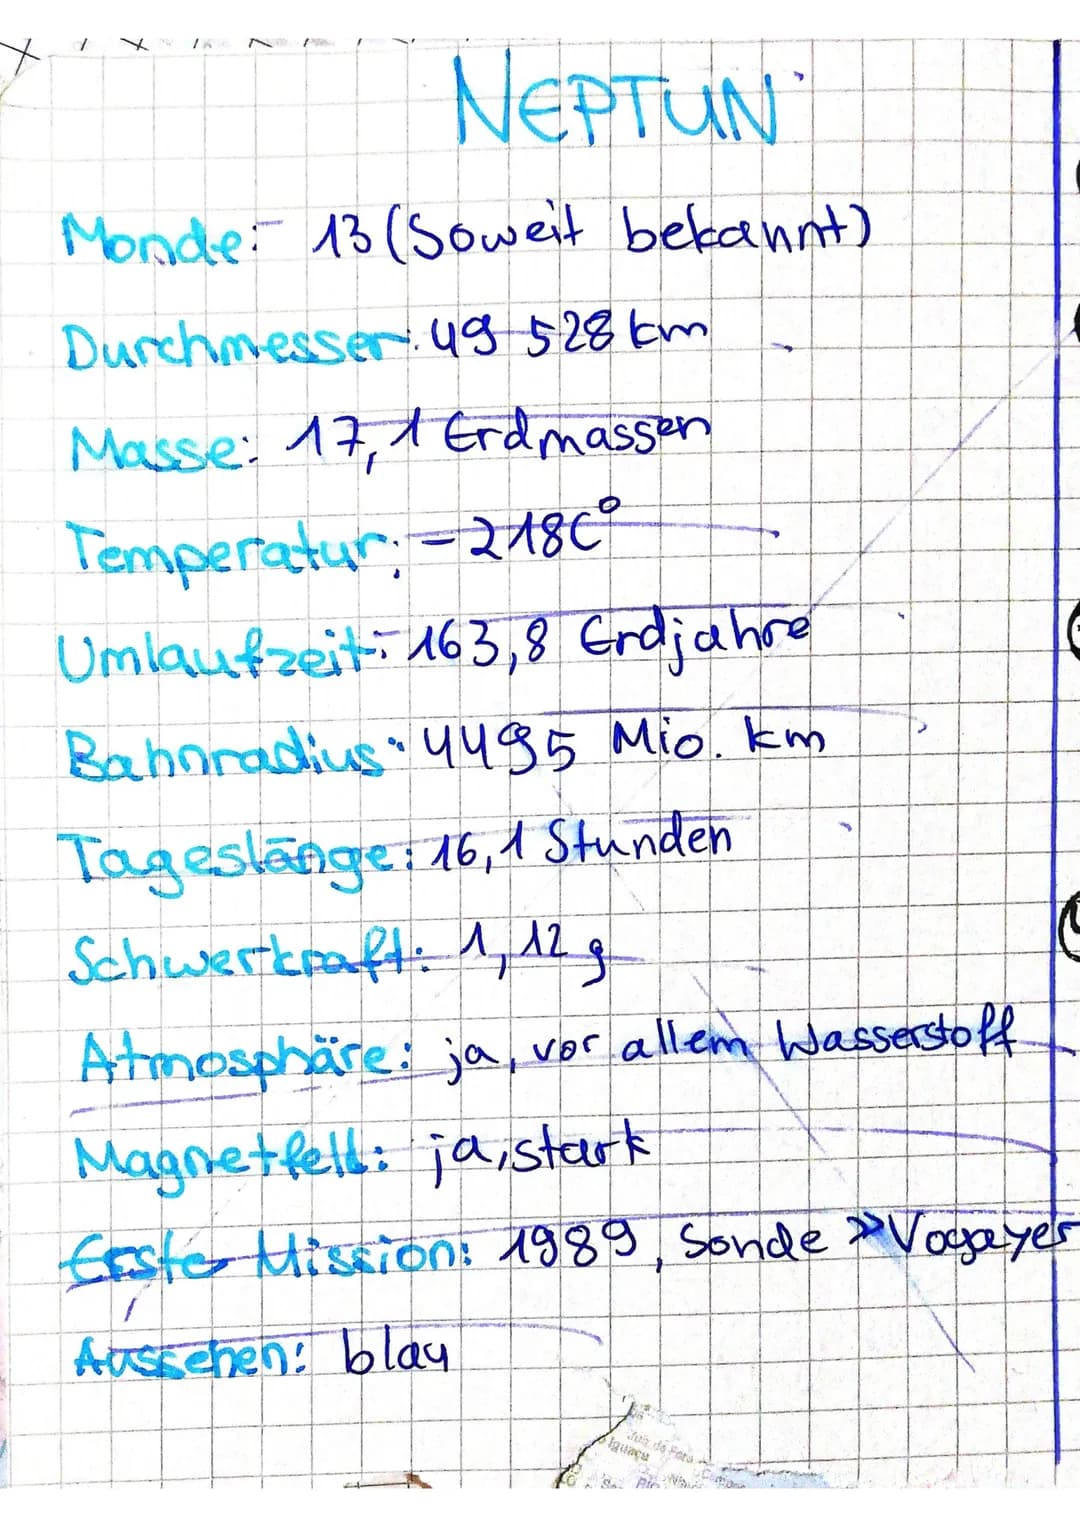 NEPTUN
Monde: 13 (Soweit bekannt)
Durchmesser: 49 528 km
Masse: 17,1 Erdmassen
Temperatur: -218C°
Umlaufzeit: 163,8 Erdjahre
Bahnradius: 4495 Mio. km
Tageslänge: 16,1 Stunden
Schwerkraft: 1,12 g
Atmosphäre: ja, vor allem Wasserstoff
Magnetfeld: ja, stark
Erste Mission: 1989, Sonde »Vogayer
Aussehen: blau
Juiz de Fora
Iguaçu